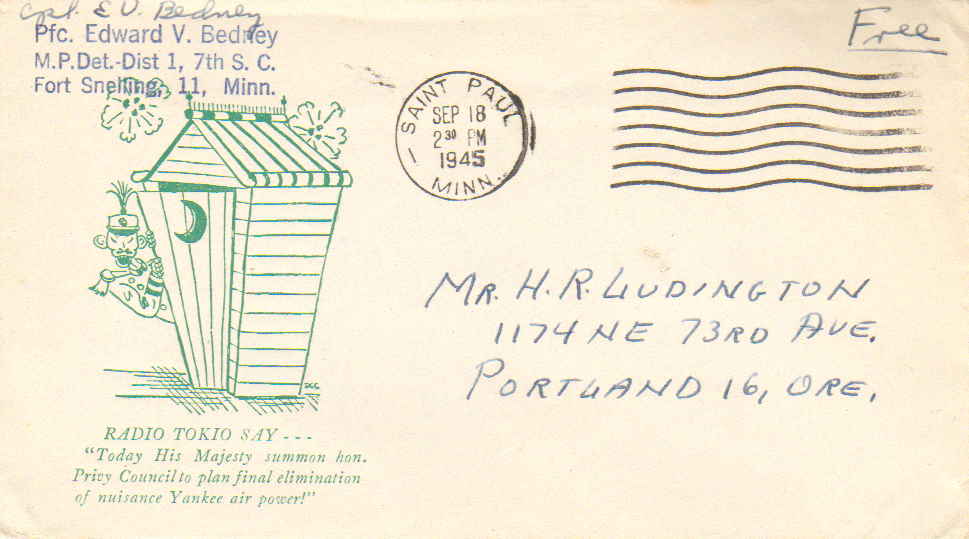 Cpl. E V. Bedney
Pfc. Edward V. Bedney
M.P.Det.-Dist 1, 7th S. C.
Fort Snelling, 11, Minn.
Free
SAINT PAUL
SEP 18
2 30 PM
1945
MINN.
MR. H. R. LUDINGTON
1174 NE 73RD AVE.
PORTLAND 16, ORE.
RADIO TOKIO SAY - - -
"Today His Majesty summon hon.
Privy Council to plan final elimination
of nuisance Yankee air power!"